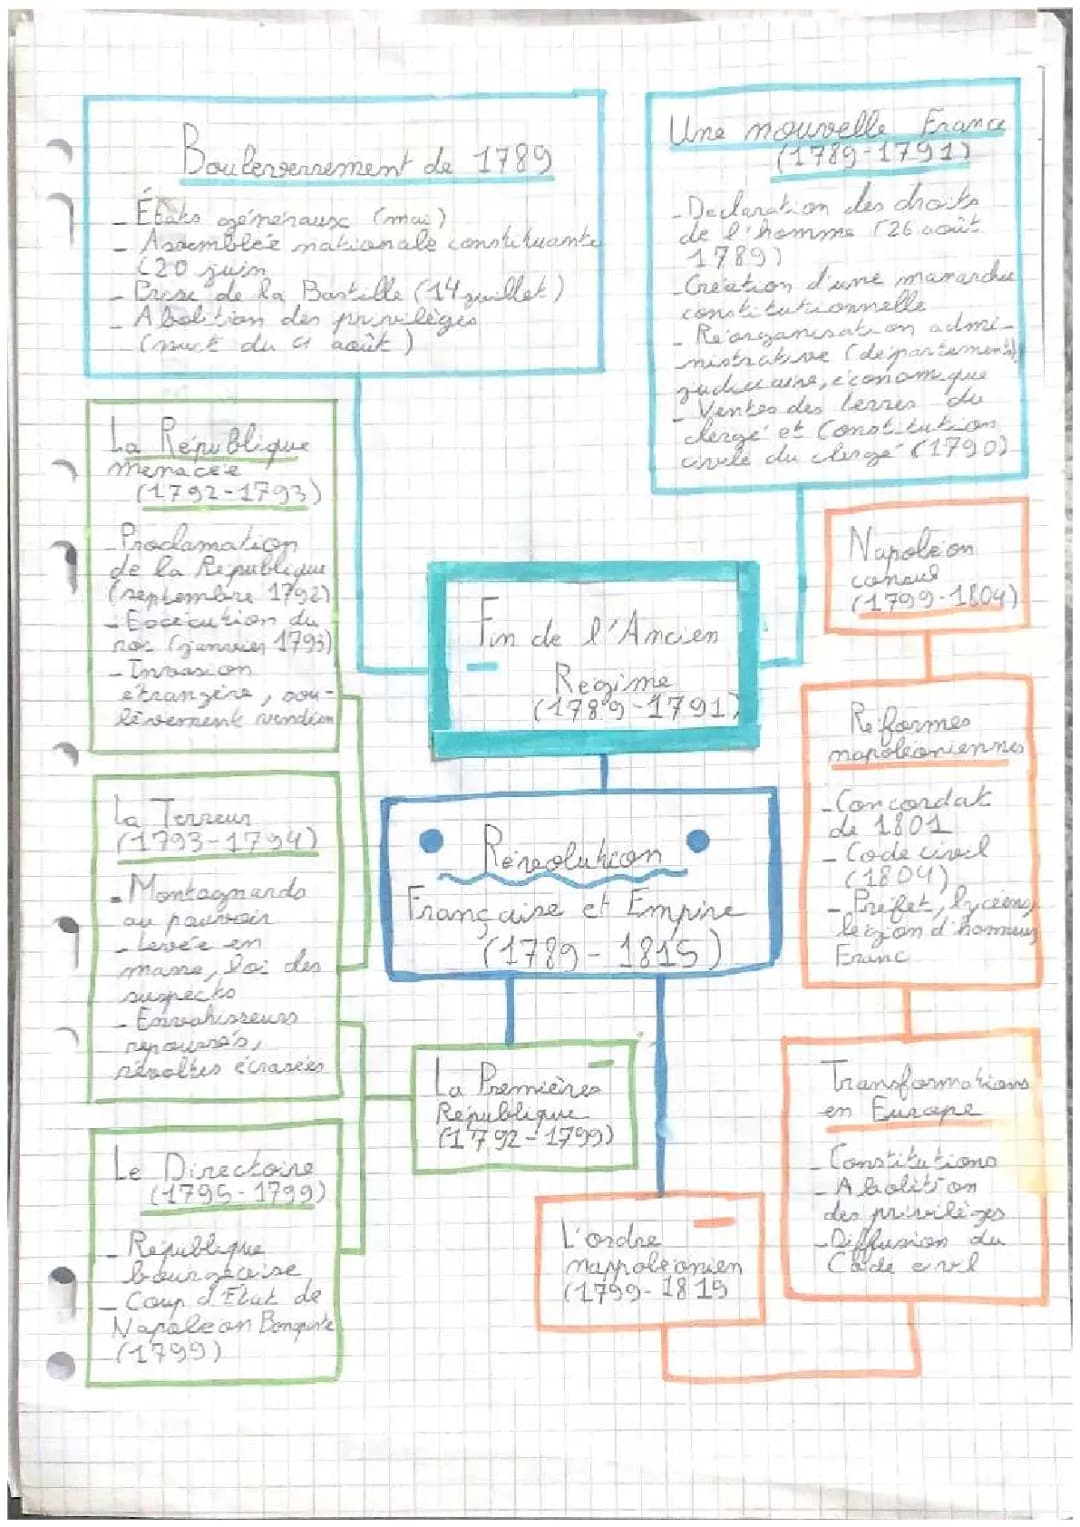 Bouleversement de 1789
- États généraux (mai)
- Assemblée nationale constituante
(20 juin
- Prise de la Bastille (14 juillet)
- Abolition des privilèges
- (nuit du 4 août)
Une nouvelle France
(1789-1791)
- Declaration des droits
de l'homme (26 août
1789)
- Création d'une monarchie
constitutionnelle
- Réorganisation admi-
nistrative (départements)
judiciaire, économique
- Ventes des terres du
clergé et Constitution
civile du clergé (1790)
La République
menacée
(1792-1793)
- Proclamation
de la République
(septembre 1792)
- Exécution du
roi (janvier 1793)
- Invasion
étrangère, sou-
lèvement vendéen
Napoléon
consul
(1799-1804)
Fin de l'Ancien
Regime
(1789-1791)
Réformes
napoléoniennes
- Concordat
de 1801
- Code civil
(1804)
- Préfet, lycéens,
légion d'honneur,
Franc
La Terreur
(1793-1794)
- Montagnards
au pouvoir
- Levée en
masse, loi des
suspects
- Envahisseurs
repoussés,
révoltes écrasées
Révolution
Française et Empire
(1789-1815)
La Premières
République
(1792-1799)
Transformations
en Europe
- Constitutions
- Abolition
des privilèges
- Diffusion du
Code civil
Le Directoire
(1795-1799)
- République
bourgeoise
- Coup d'État de
Napoléon Bonaparte
(1799)
L'ordre
nappoléonien
(1799-1815